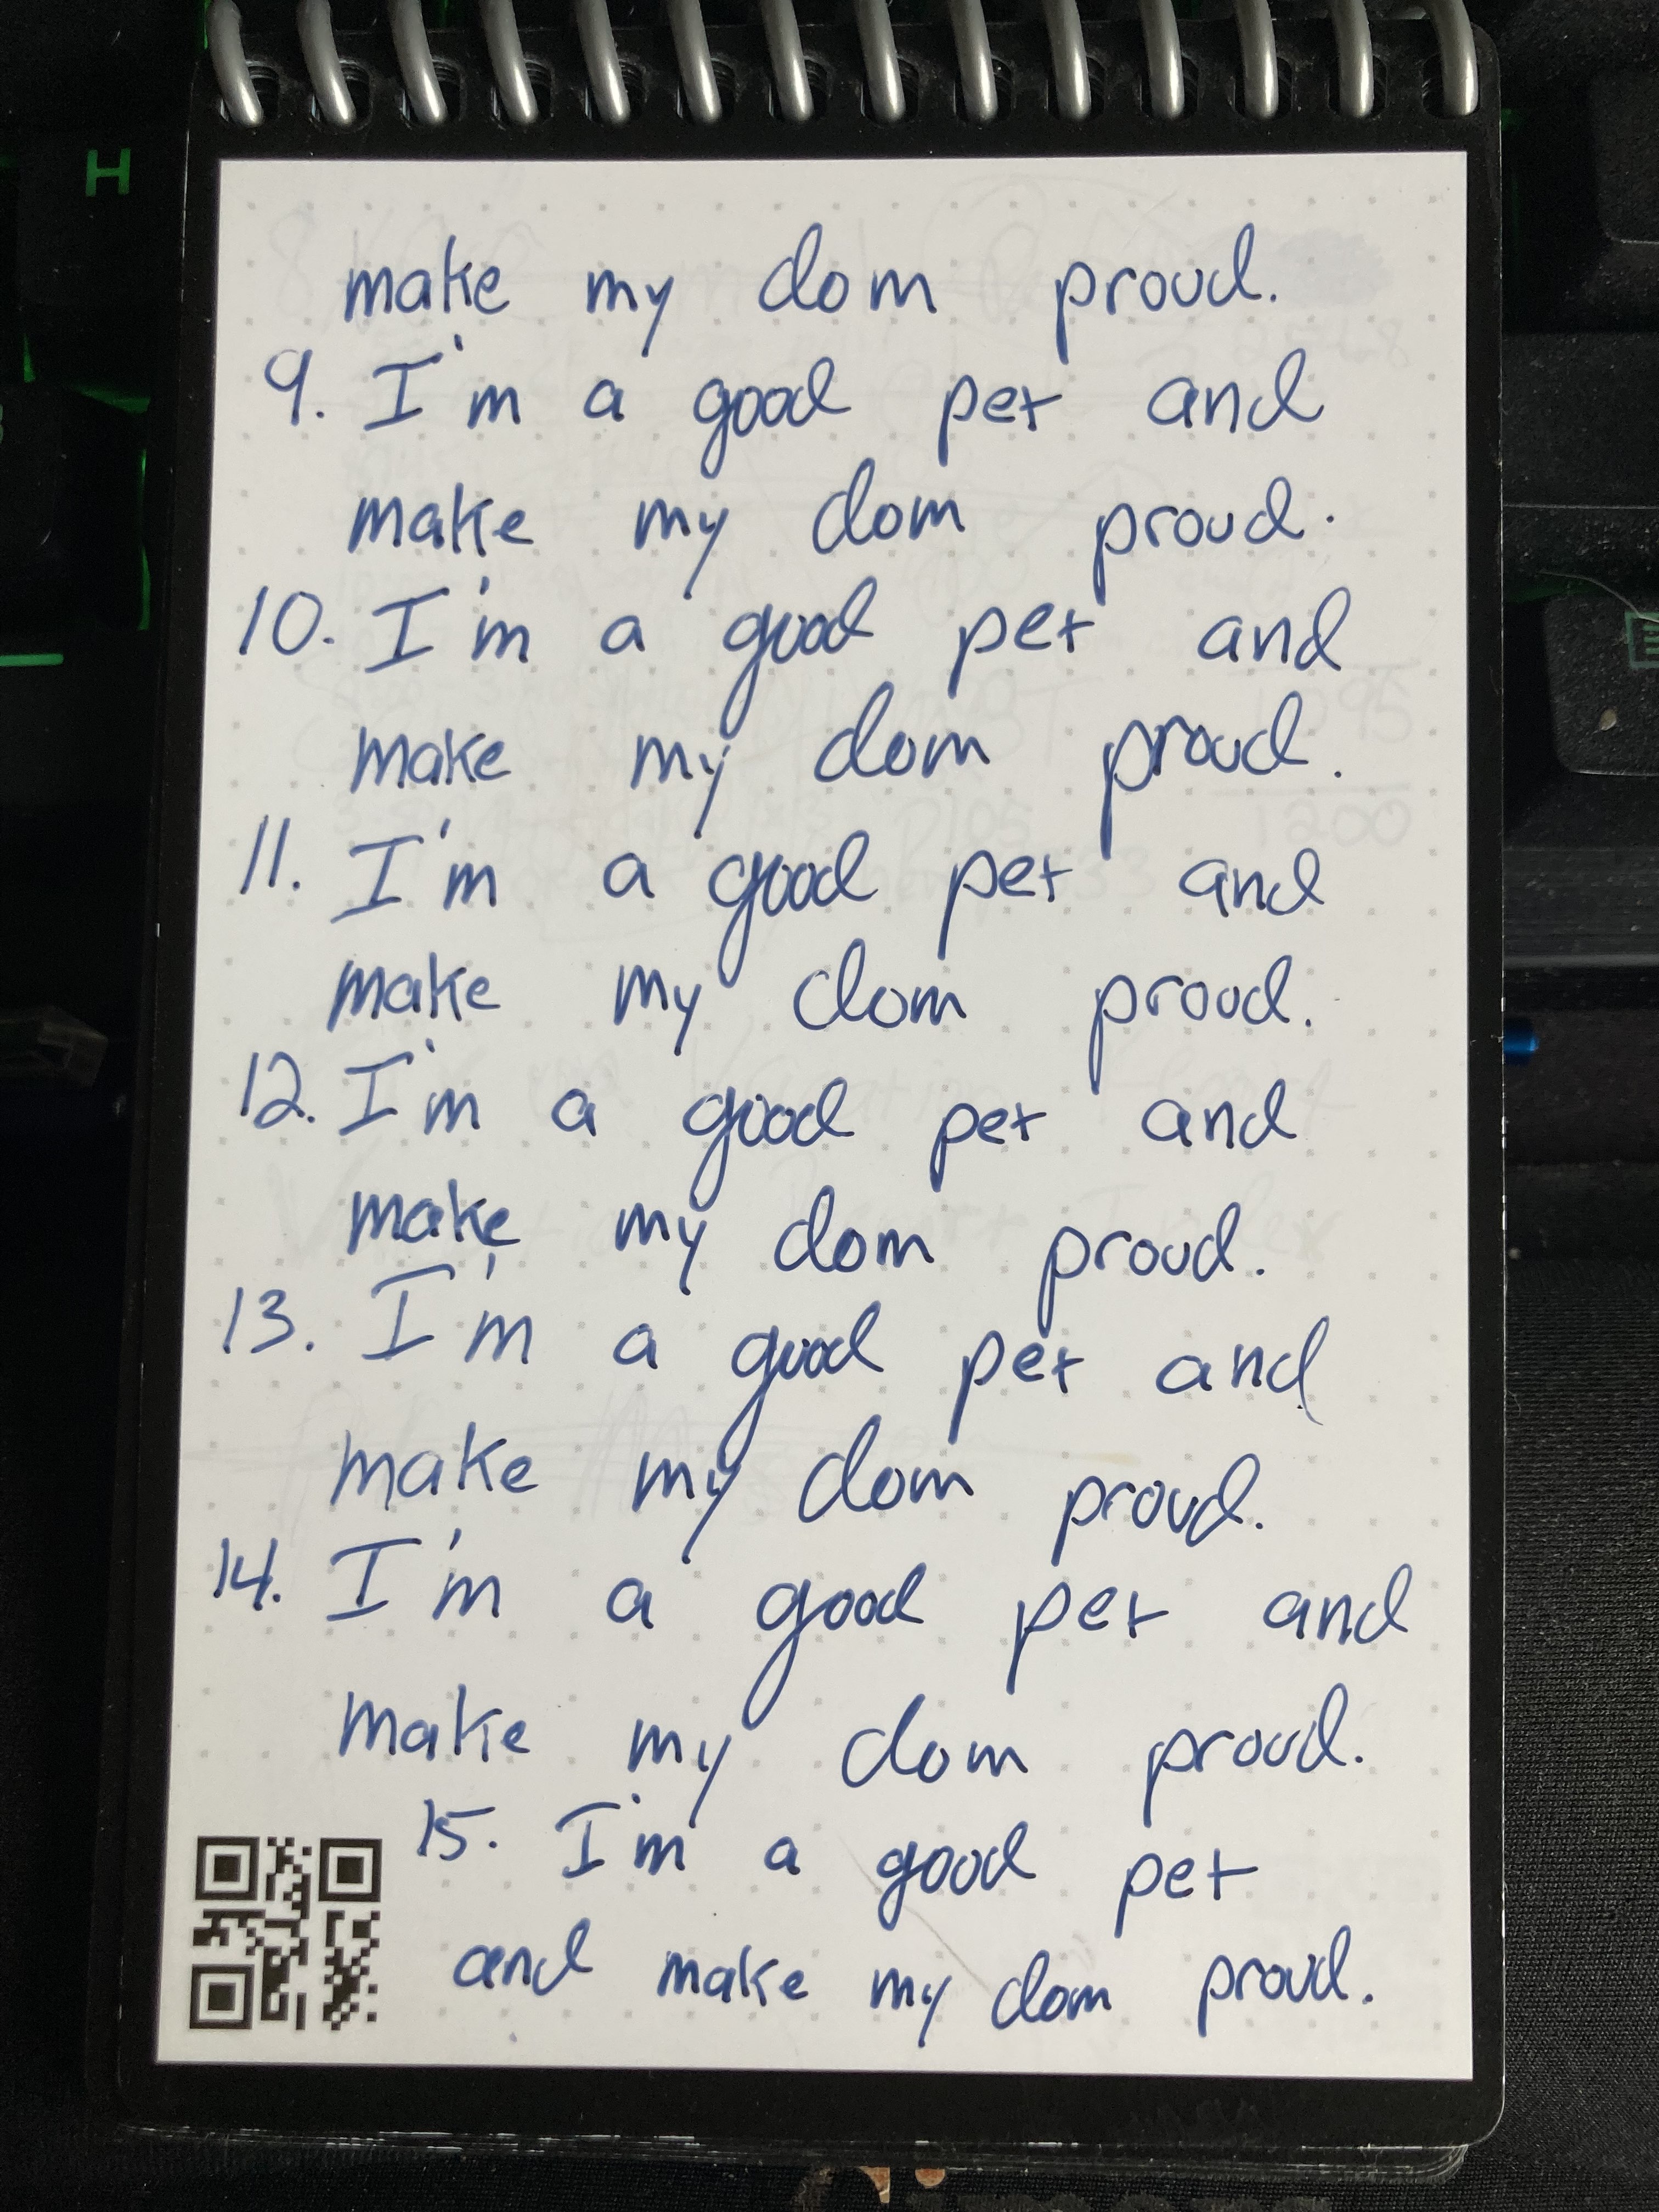 make my dom proud.
9. I'm a good pet and
make my dom proud.
10. I'm a good pet and
make my dom proud.
11. I'm a good pet and
make my dom proud.
12. I'm a good pet and
make my dom proud.
13. I'm a good pet and
make my dom proud.
14. I'm a good pet and
make my dom proud.
15. I'm a good pet
and make my dom proud.
H